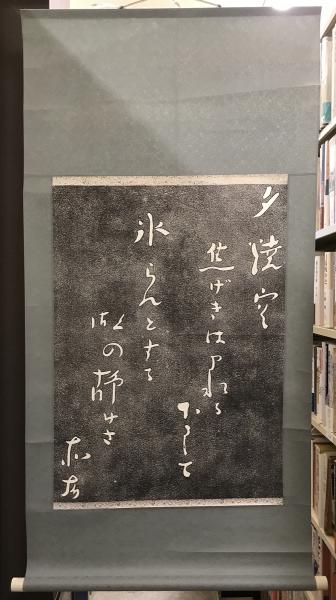 夕焼空
焦げきはまれる
下にして
氷らんとする
湖の静けさ
赤彦